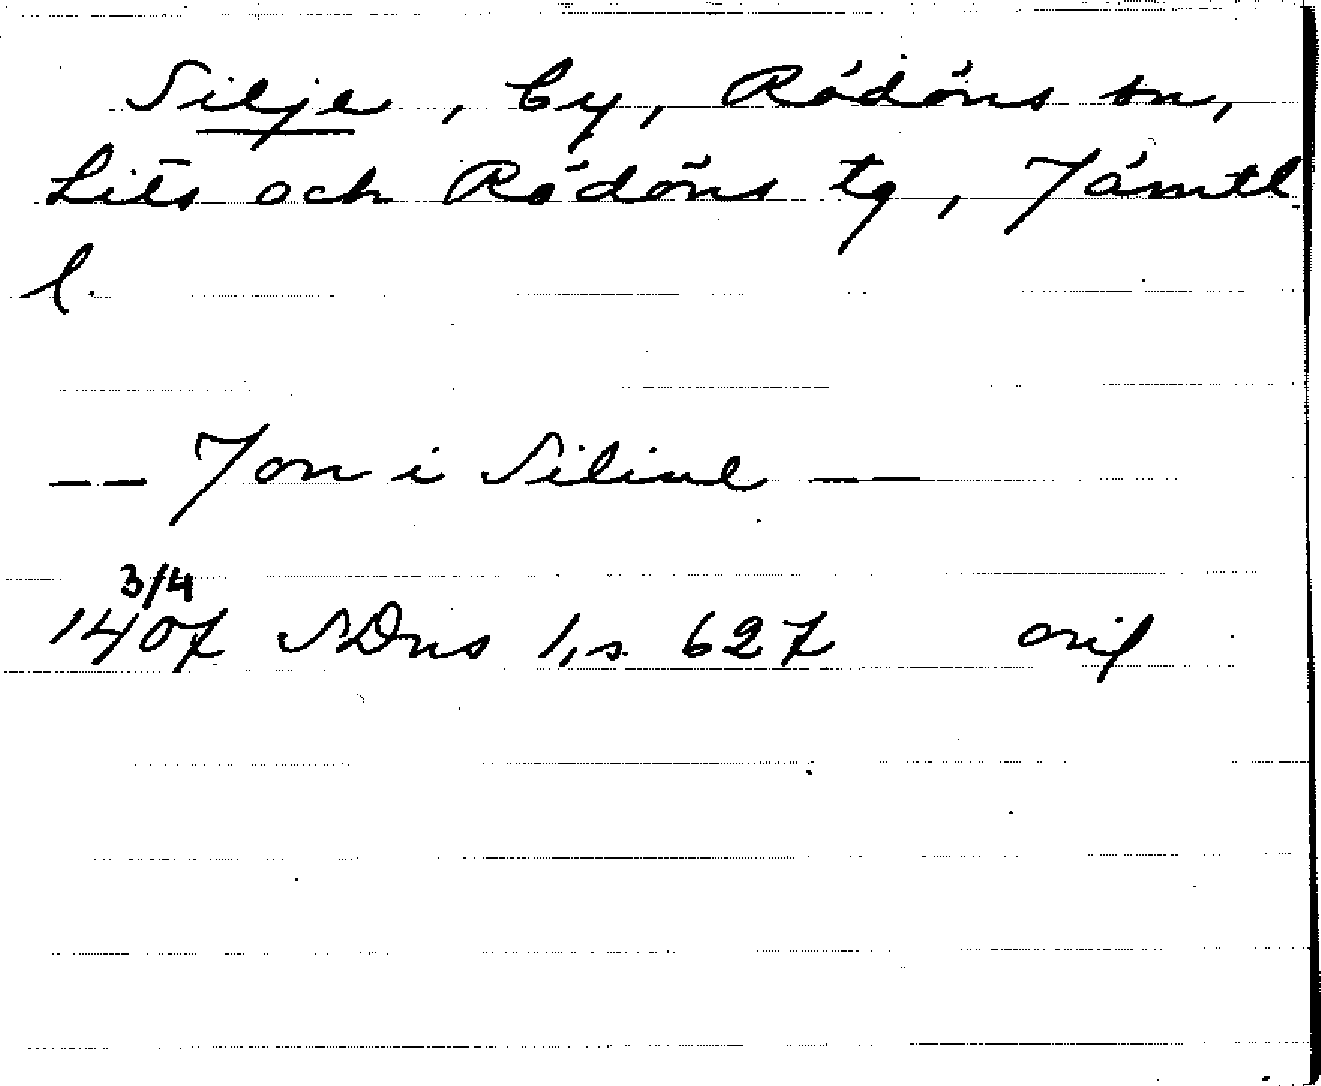 Silje, by, Rödöns sn,
Lits och Rödöns tg, Jämtl.
l.
-- Jon i Siliul --
3/4
1407 SDns 1, s. 627 orig